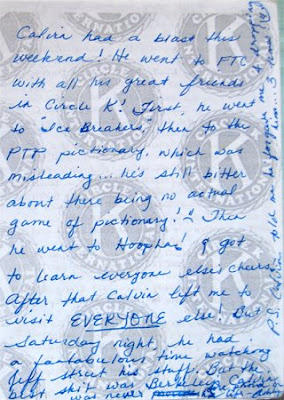 Calvin had a blast this
weekend! He went to FTC
with all his great friends
in Circle K! First, he went
to "Ice Breakers, then to the
PTP pictionary, which was
misleading... he's still bitter
about there being no actual
game of pictionary! Then
he went to Hoopha! & got
to learn everyone else's cheers!
After that Calvin left me to
visit EVERYONE else! But
Saturday night he had
a fantabulous time watching
Jeff strut his stuff. But the
best shit was Berkeley
was never
P.S. Calvin told me he forgives me 4 dropping
him... 3 times
CIRCLE K
INTERNATIONAL